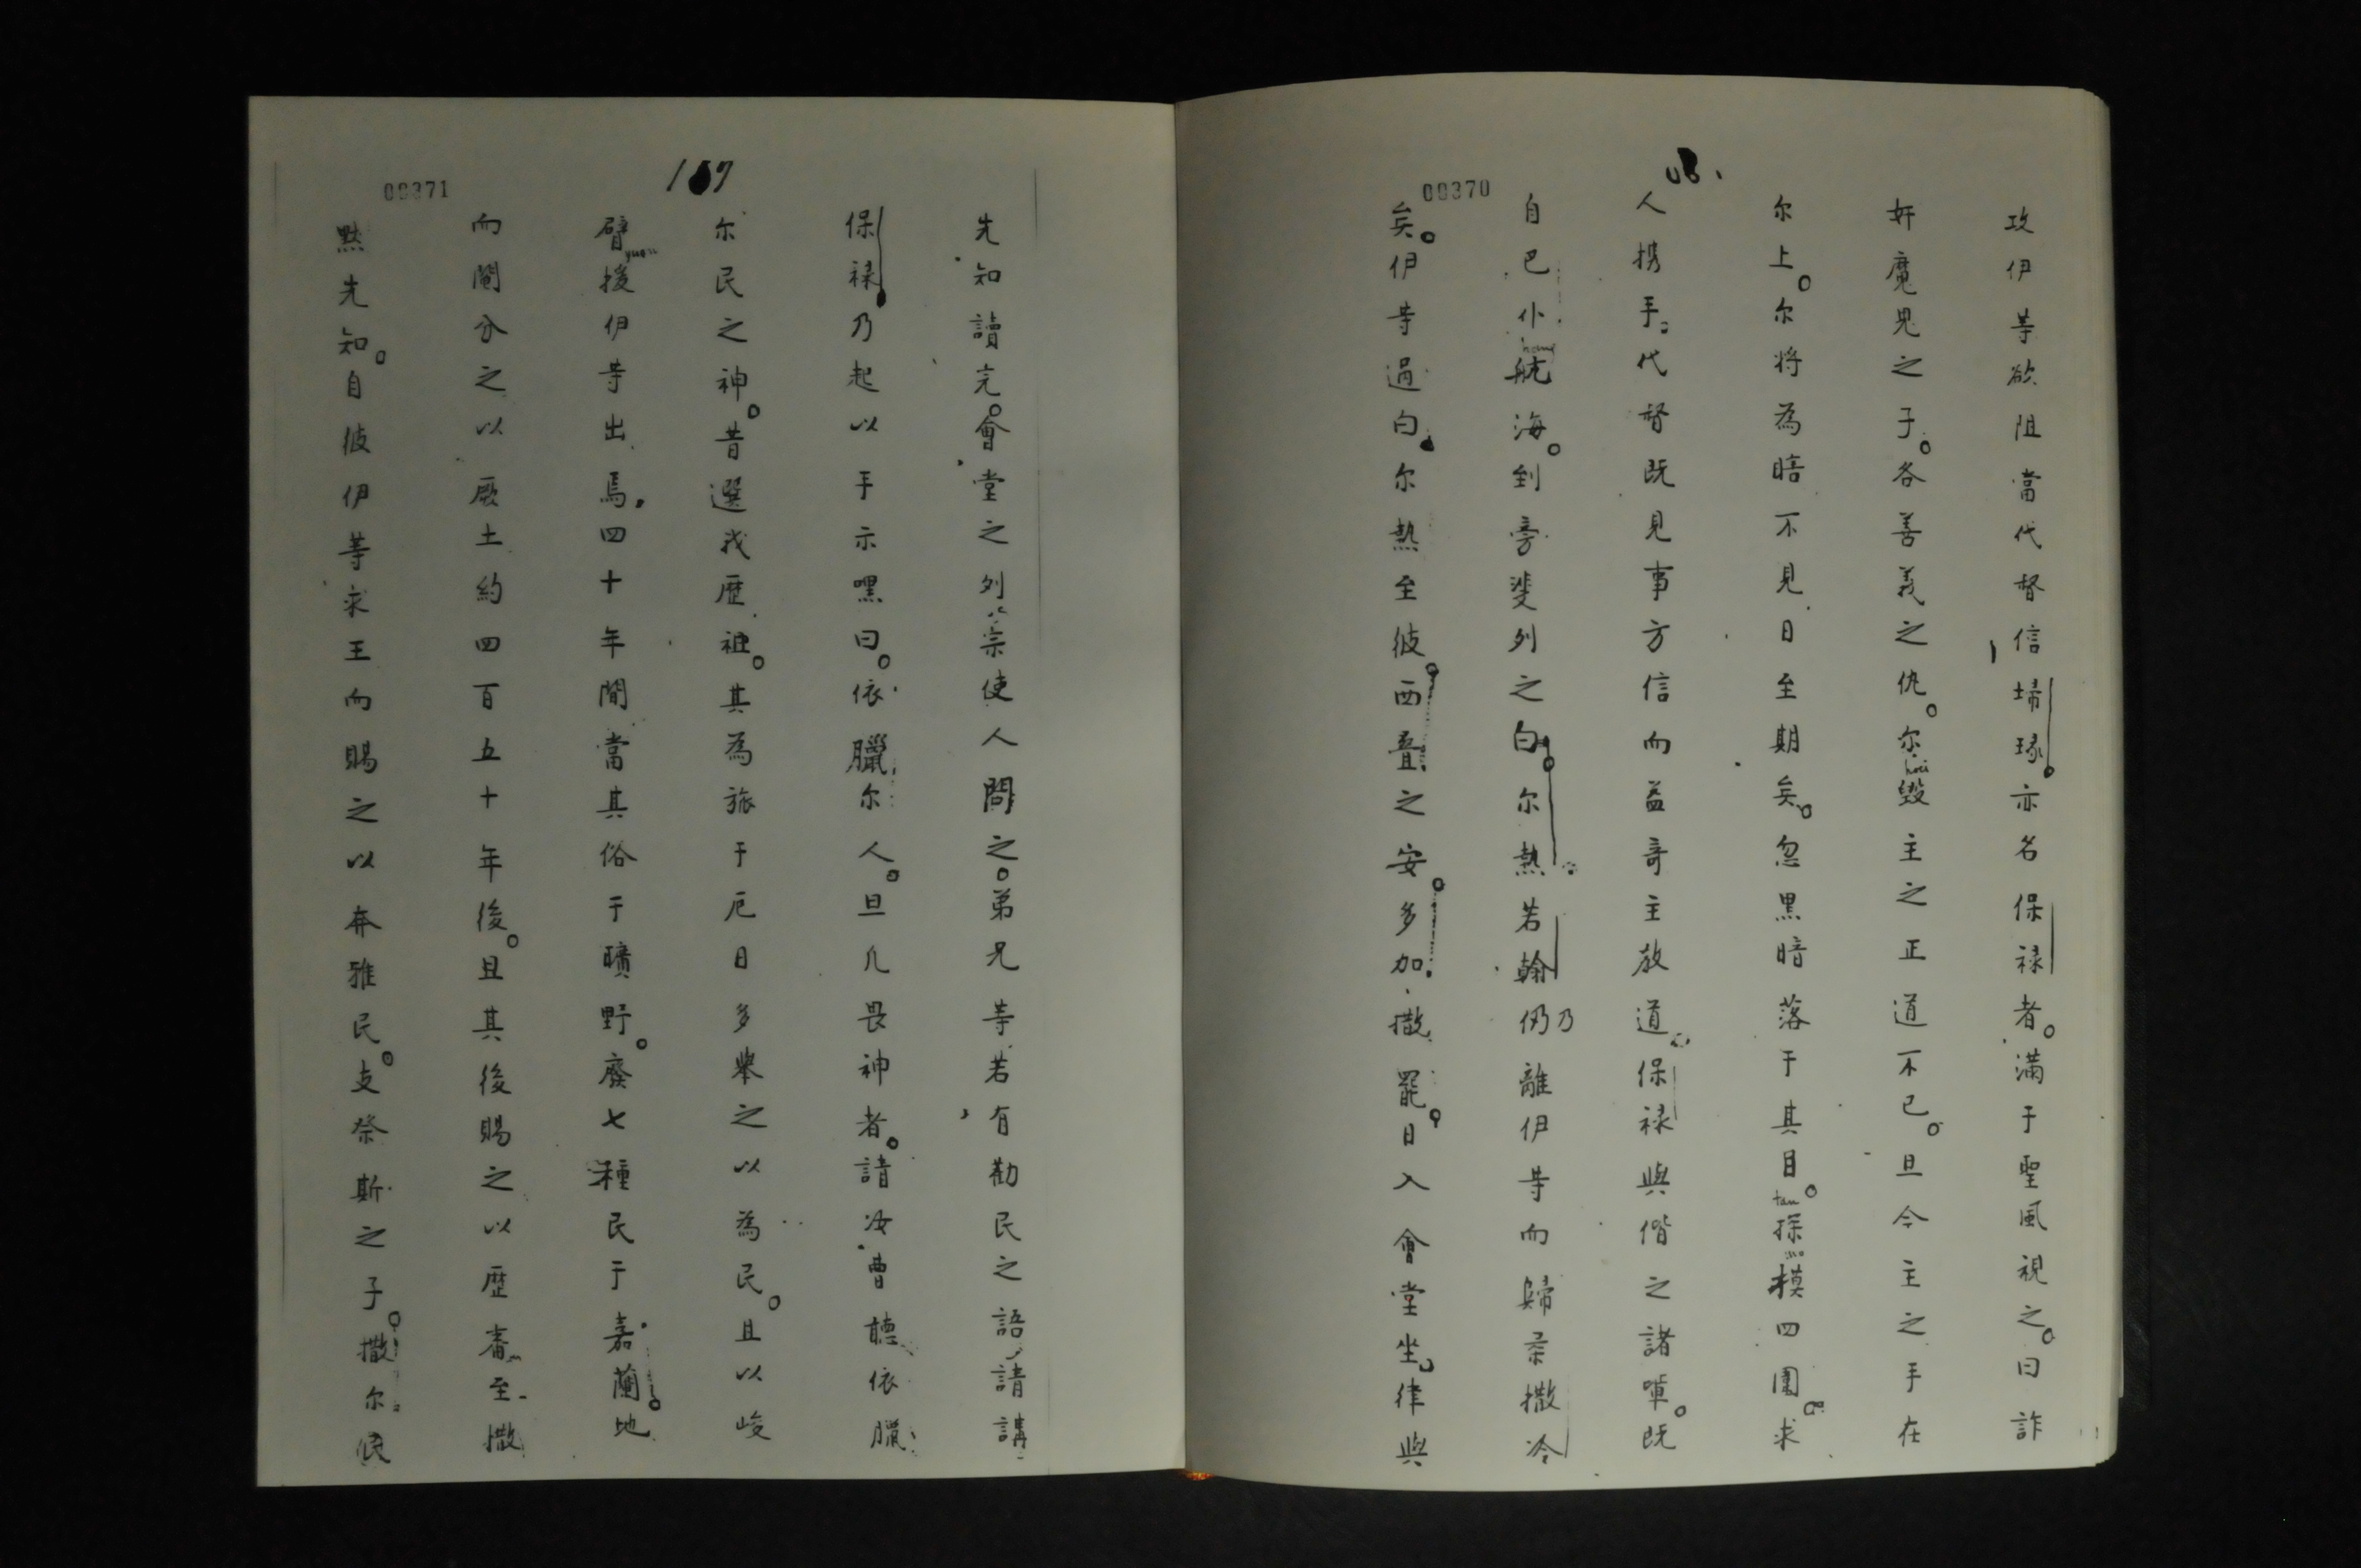 00370
攻伊等欲阻當代督信㷌琭亦名保禄者。滿于聖風視之。曰詐
奸魔鬼之子。各善義之仇。尔毀主之正道不已。旦今主之手在
尔上。尔將為暗不見日至期矣。忽黒暗落于其目。探摸四圍。求
人携手。代督既見事方信而益竒主教道。保禄與偕之諸軰。既
自巴仆航海。到旁斐列之白。尔熱若翰仍乃離伊等而歸柔撒冷
矣。伊等過白。尔熱至彼。西叠之安。多加撒罷。日入會堂坐。律與
00371
107
先知讀完。會堂之列宗使人問之。弟兄等若有勸民之語請講
保禄乃起以手示嘿曰。依臘尔人。旦凡畏神者。請汝曹聽依臘
尔民之神。昔選我歴祖。其為旅于厄日多舉之以為民。且以峻
臂援伊等出焉。四十年間當其俗于曠野。廢七種民于嘉蘭地
而鬮分之以厥土約四百五十年後。且其後賜之以歴審至撒
黙先知。自彼伊等求王而賜之以奔雅民。支祭斯之子。撒尔。